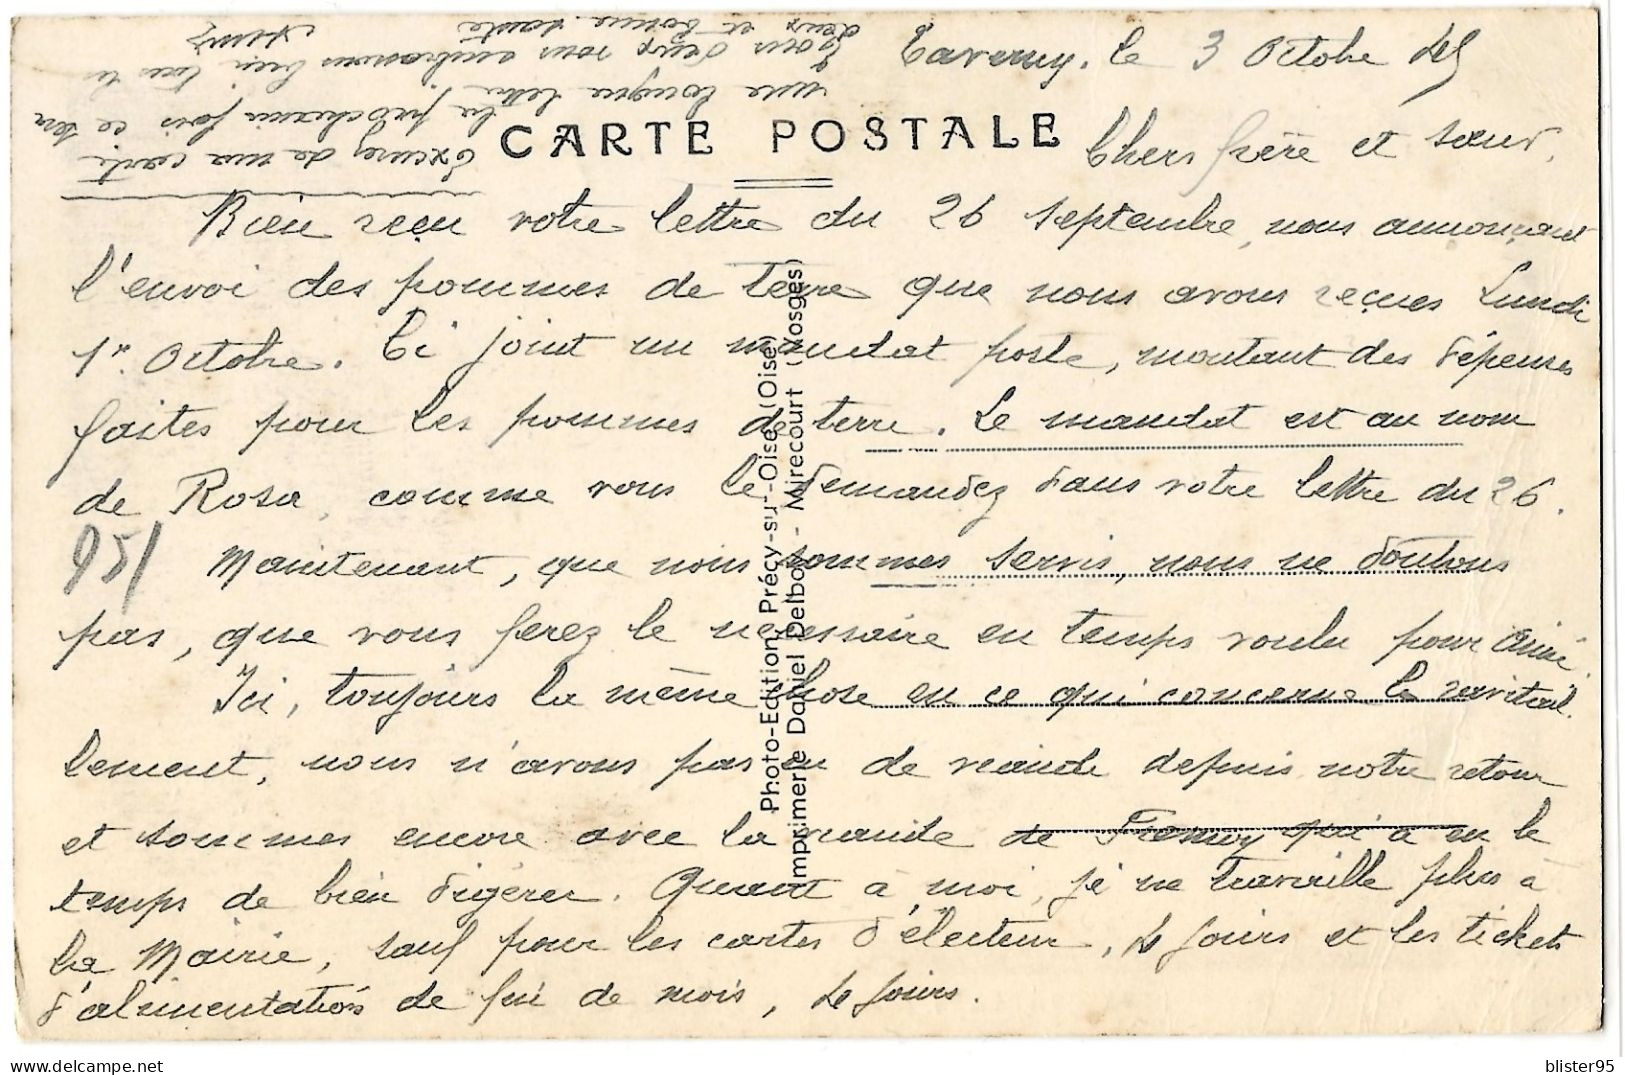 Taverny, le 3 Octobre 45
CARTE POSTALE
Chers frère et sœur,
Bien reçu votre lettre du 26 septembre, nous annonçant
l'envoi des pommes de terre que nous avons reçues Lundi
1er Octobre. Ci joint un mandat poste, montant des dépenses
faites pour les pommes de terre. Le mandat est au nom
de Rosa, comme vous le demandez dans votre lettre du 26.
Maintenant, que nous sommes servis, nous ne doutons
pas, que vous ferez le nécessaire en temps voulu pour
Ici, toujours la même chose en ce qui concerne le ravitail
lement, nous n'avons pas eu de viande depuis notre retour
et sommes encore avec la viande de qui a eu le
temps de bien digérer. Quant à moi, je ne travaille plus à
la Mairie, sauf pour les cartes d'électeur, 4 jours et les tickets
d'alimentation de fin de mois, 4 jours.
Excusez de ma carte
la prochaine fois ce sera
une longue lettre
Tous deux vous embrassons bien tous les
deux et bonne santé
951
Photo-Edition Précy-sur-Oise (Oise)
Imprimerie Daniel Delboy - Mirecourt (Vosges)
blister95